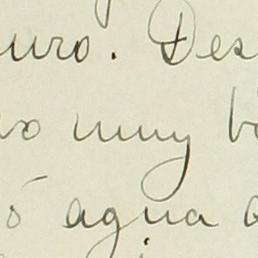 uro. Des
muy b
ó agua a